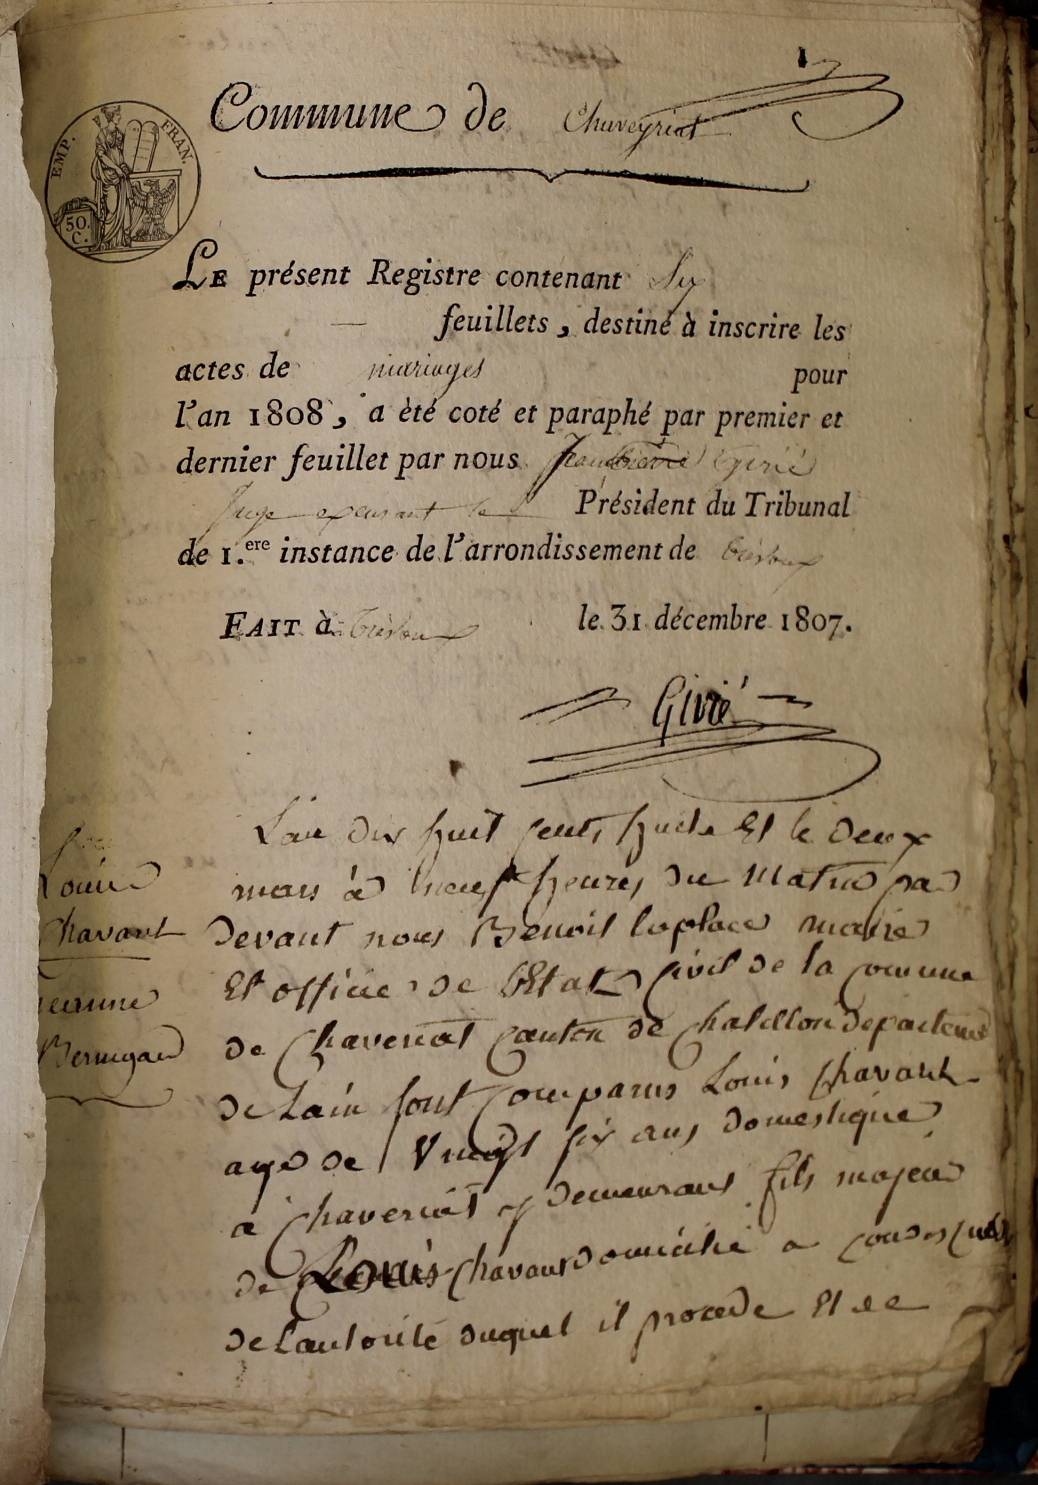 Commune de Chaveyriat
EMP. FRAN.
50.
C.
LE présent Registre contenant Six
feuillets, destiné à inscrire les
actes de mariages pour
l'an 1808, a été coté et paraphé par premier et
dernier feuillet par nous
Juge exerçant le Président du Tribunal
de 1.ere instance de l'arrondissement de Trévoux
FAIT à Trévoux le 31 décembre 1807.
Givié
Louis
Chavant
Jeanne
L'an dix huit cents huit Et le deux
mars à neuf heures du Matin par
devant nous Benoit laplace maire
Et officier de l'Etat Civil de la commune
de Chaveriat Canton de Chatillon departement
de Lain sont comparus Louis Chavant
agé de Vingt six ans domestique
a Chaveriat y demeurant fils majeur
de Louis Chavant domicilié a
de Lautorité duquel il procede Et de